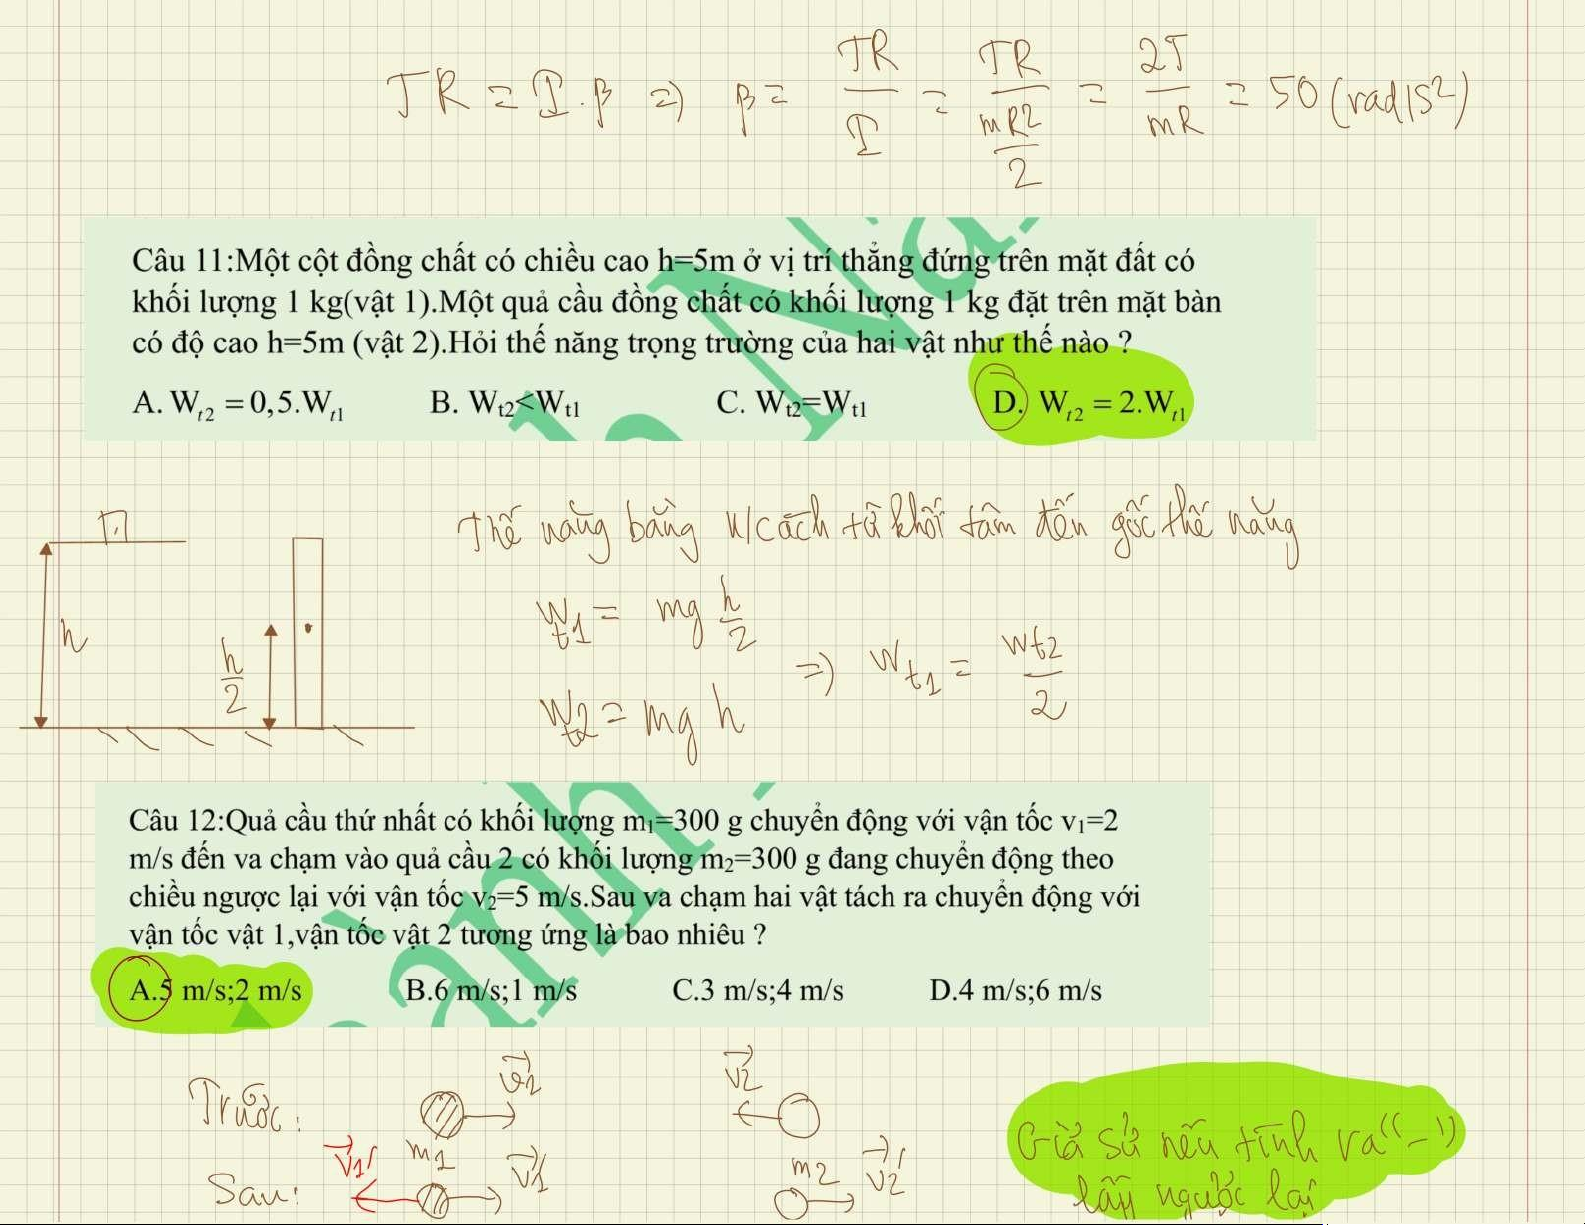 TR = I.β => β = TR/I = TR/(mR2/2) = 2T/mR = 50 (rad/s2)
Câu 11:Một cột đồng chất có chiều cao h=5m ở vị trí thẳng đứng trên mặt đất có
khối lượng 1 kg(vật 1).Một quả cầu đồng chất có khối lượng 1 kg đặt trên mặt bàn
có độ cao h=5m (vật 2).Hỏi thế năng trọng trường của hai vật như thế nào ?
A. Wt2 = 0,5.Wt1 B. Wt2<Wt1 C. Wt2=Wt1 D. Wt2 = 2.Wt1
Thế năng bằng k/cách từ khối tâm đến gốc thế năng
h
h/2
Wt1 = mg h/2
Wt2 = mg h
=> Wt1 = Wt2/2
Câu 12:Quả cầu thứ nhất có khối lượng m1=300 g chuyển động với vận tốc v1=2
m/s đến va chạm vào quả cầu 2 có khối lượng m2=300 g đang chuyển động theo
chiều ngược lại với vận tốc v2=5 m/s.Sau va chạm hai vật tách ra chuyển động với
vận tốc vật 1,vận tốc vật 2 tương ứng là bao nhiêu ?
A.5 m/s;2 m/s B.6 m/s;1 m/s C.3 m/s;4 m/s D.4 m/s;6 m/s
Trước: v1 v2
m1 m2
Sau: v1' v1' v2'
Giả sử nếu tính ra "-"
lấy ngược lại